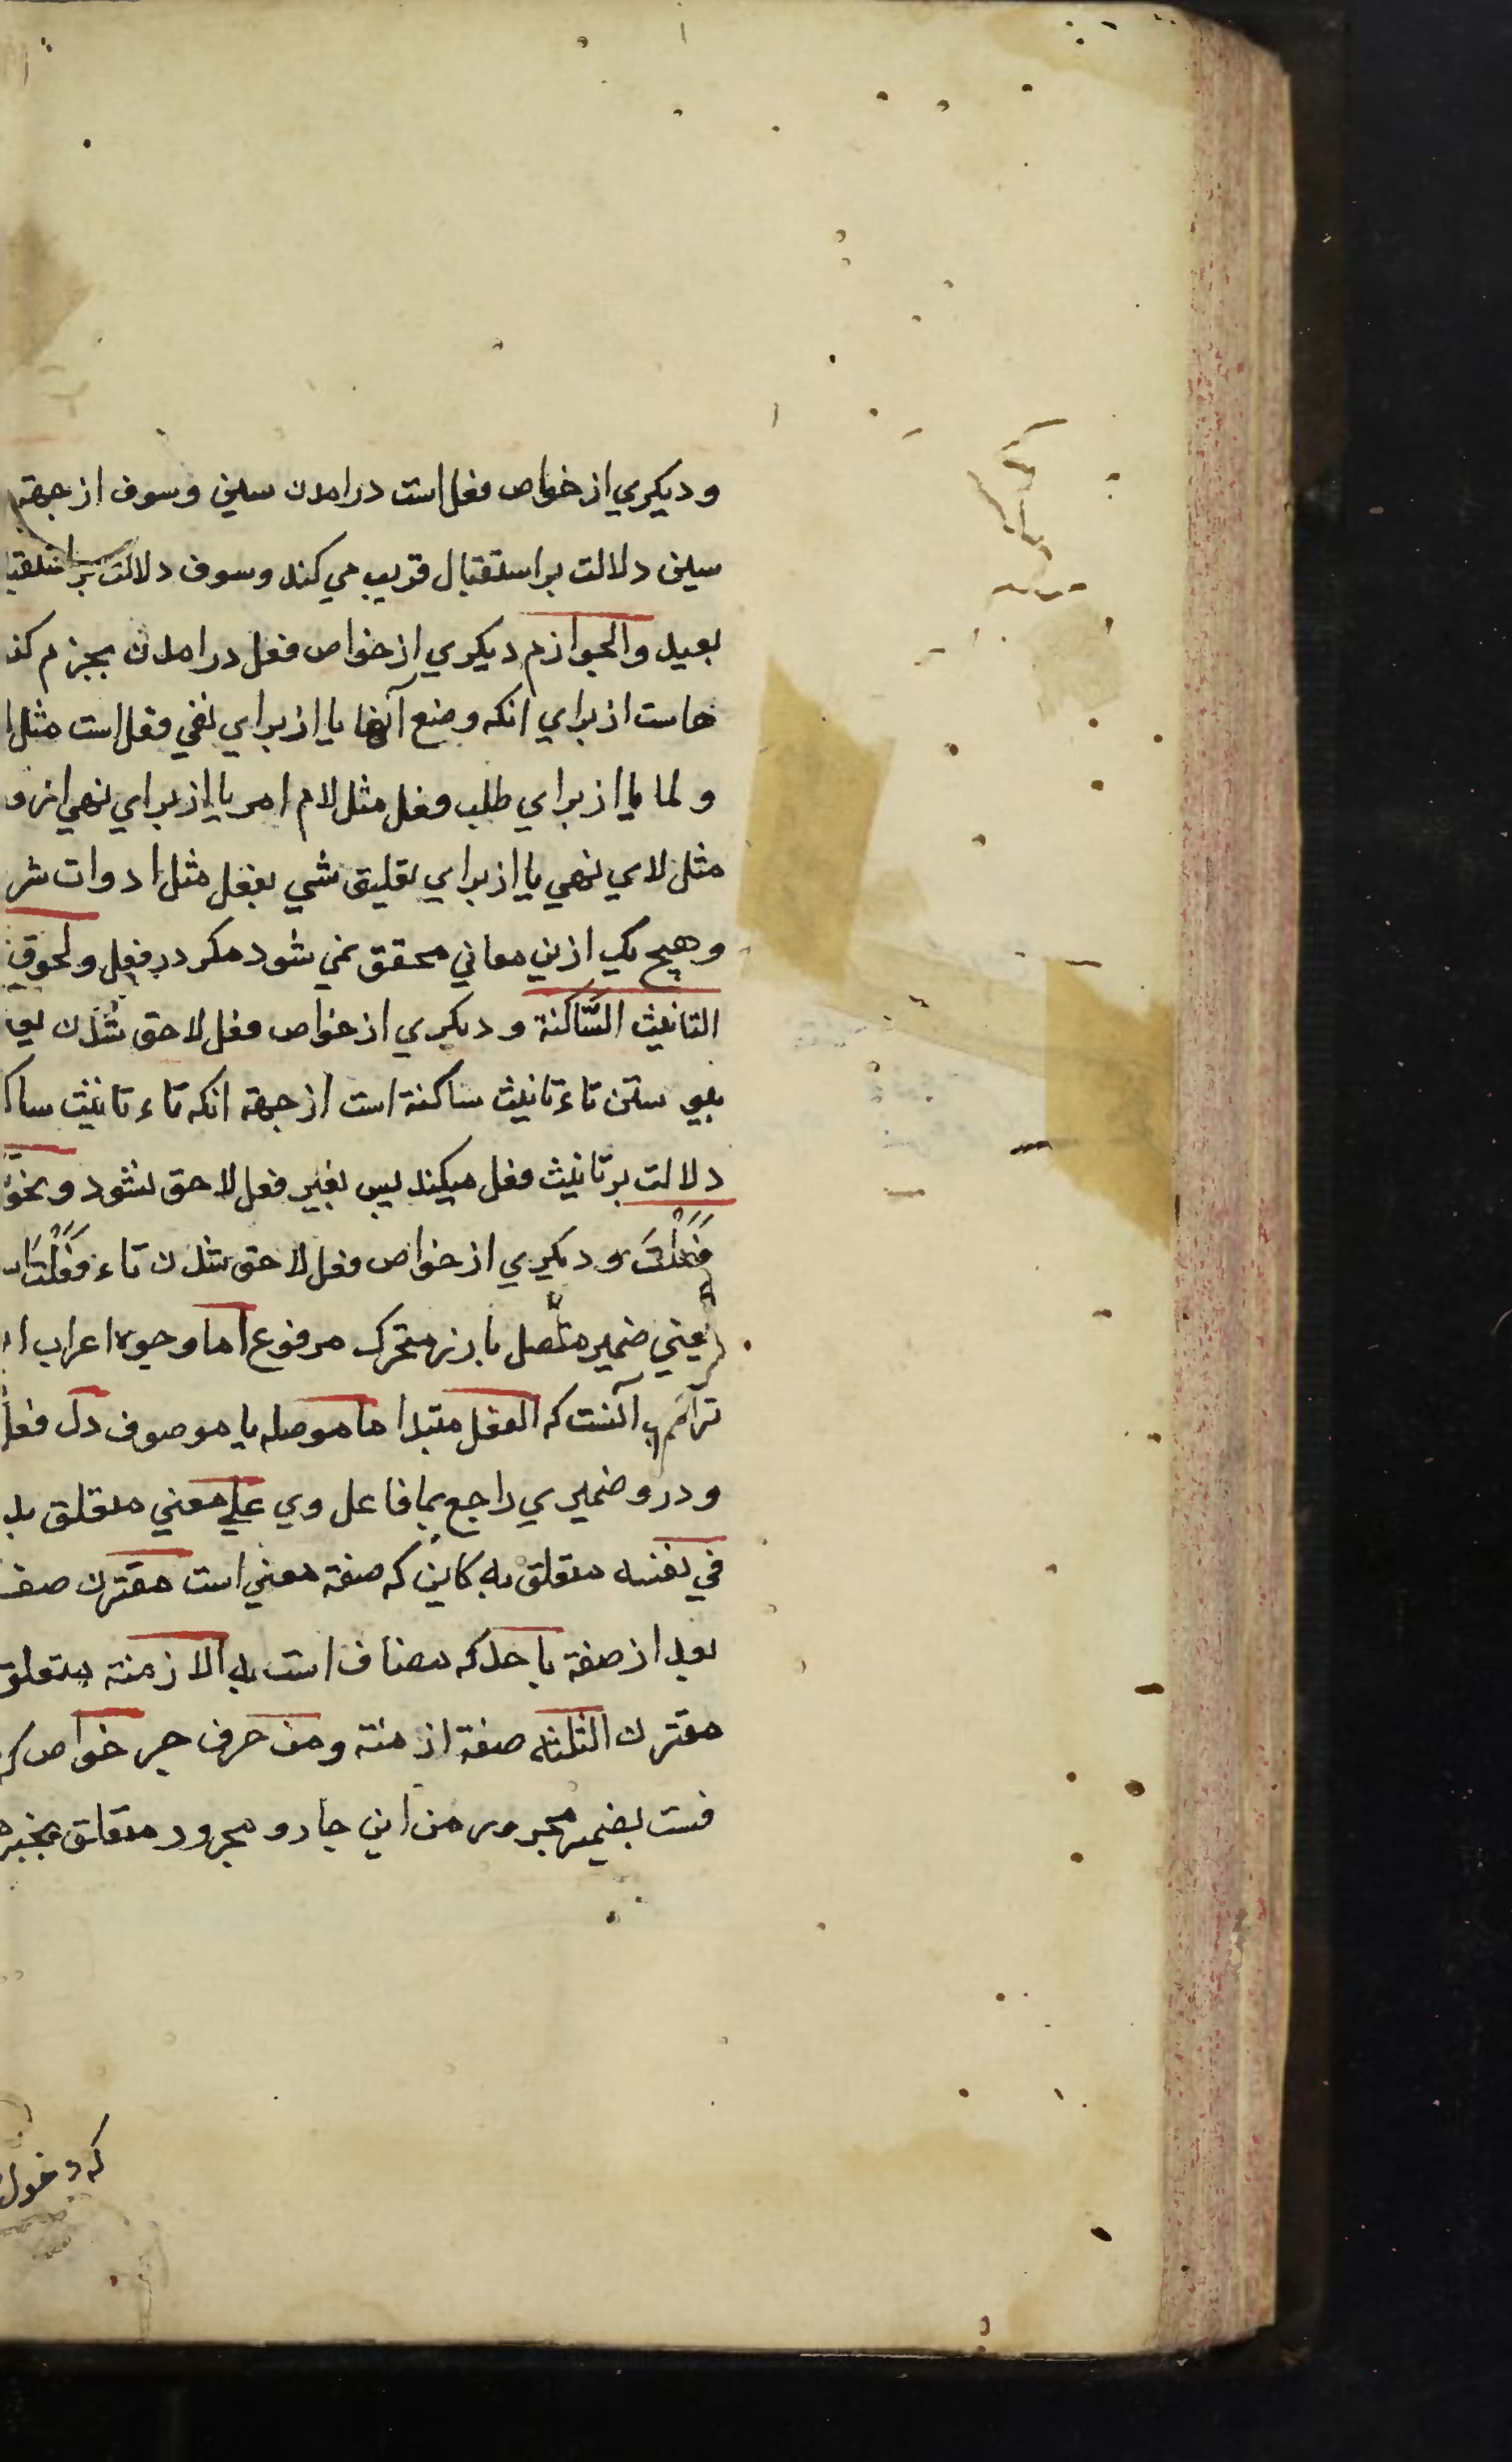 و ديكري از خواص فعل است درامدن سين و سوف از جهة
سين دلالت بر استقبال قريب مي كند و سوف دلالت بر استقبا
بعيد والجوازم ديكري از خواص فعل درامدن بجزم كنـ
هاست از براي انكه وضع آنها يا از براي نفي فعل است مثل
و لما يا از براي طلب فعل مثل لام امر يا از براي نهي از و
مثل لاي نهي يا از براي تعليق شي بفعل مثل ادوات شر
و هيج يك ازين معاني محقق نمي شود مكر در فعل ولحوق
التانيث السّاكنة و ديكري از خواص فعل لاحق شدن يو
بيو ستن تاء تانيث ساكنة است از جهة انكه تاء تانيث ساكـ
دلالت بر تانيث فعل ميكند پس بغير فعل لاحق نشود و نحوُ
فَعَلْتَ و ديكري از خواص فعل لاحق شدن تاء فَعَلْتَ
يعني ضمير متّصل بارز متحرك مرفوع اما وجوه اعراب
تراكيب آنست كه الفعل مبتدا ما موصله يا موصوف دل فعل
و درو ضميري راجع بما فاعل وي علي معني متعلق بد
في نفسه متعلق به كاين كه صفة معني است مقترن صفـ
بعد از صفة باحد كه مضاف است به الازمنة متعلق
مقترن الثلثه صفة ازمنة ومن حرف جر خواص كه
فست بضمير مجرور من اين جار و مجرور متعلق بخبر
كه دخول